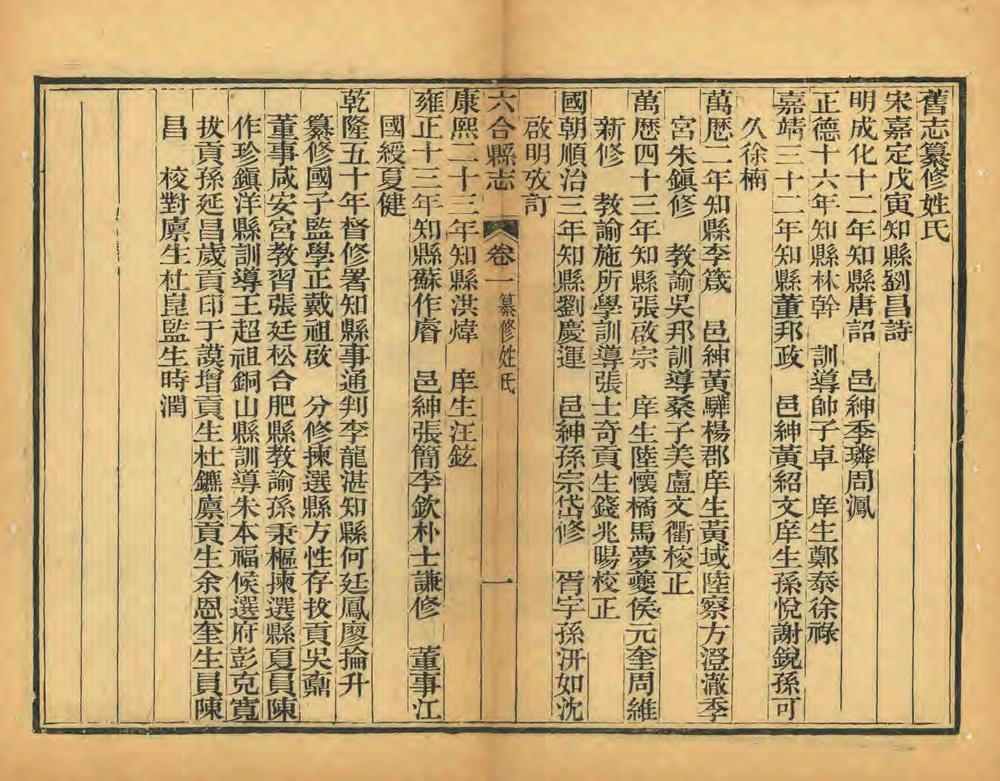 舊志纂修姓氏
宋嘉定戊寅知縣劉昌詩
明成化十二年知縣唐詔　邑紳季璘周鳳
正德十六年知縣林幹　訓導帥子卓　庠生鄭泰徐祿
嘉靖三十二年知縣董邦政　邑紳黃紹文庠生孫悅謝銳孫可
久徐楠
萬厯二年知縣李箴　邑紳黃驊楊郡庠生黃域陸察方澄澈季
宮朱鎭修　教諭吳邦訓導桑子美盧文衢校正
萬厯四十三年知縣張啟宗　庠生陸懷橘馬夢夔侯元奎周維
新修　教諭施所學訓導張士奇貢生錢兆暘校正
國朝順治三年知縣劉慶運　邑紳孫宗岱修　胥宇孫汧如沈
啟明攷訂
六合縣志　卷一　纂修姓氏　一
康熙二十三年知縣洪煒　庠生汪鉉
雍正十三年知縣蘇作睿　邑紳張簡李欽朴士謙修　董事江
國綬夏健
乾隆五十年督修署知縣事通判李龍湛知縣何廷鳳廖掄升
纂修國子監學正戴祖啟　分修揀選縣方性存拔貢吳鼒
董事咸安宮教習張廷松合肥縣教諭孫秉樞揀選縣夏員陳
作珍鎭洋縣訓導王超祖銅山縣訓導朱本福候選府彭克寬
拔貢孫延昌歲貢印于謨增貢生杜鑣廪貢生余恩奎生員陳
昌　校對廪生杜崑監生時潤